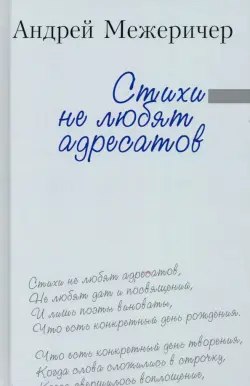 Андрей Межеричер
Стихи
не любят
адресатов
Стихи не любят адресатов,
Не любят дат и посвящений,
И лишь поэты виноваты,
Что есть конкретный день рождения.
Что есть конкретный день творения,
Когда слова сложились в строчку,
Когда свершилось воплощение,